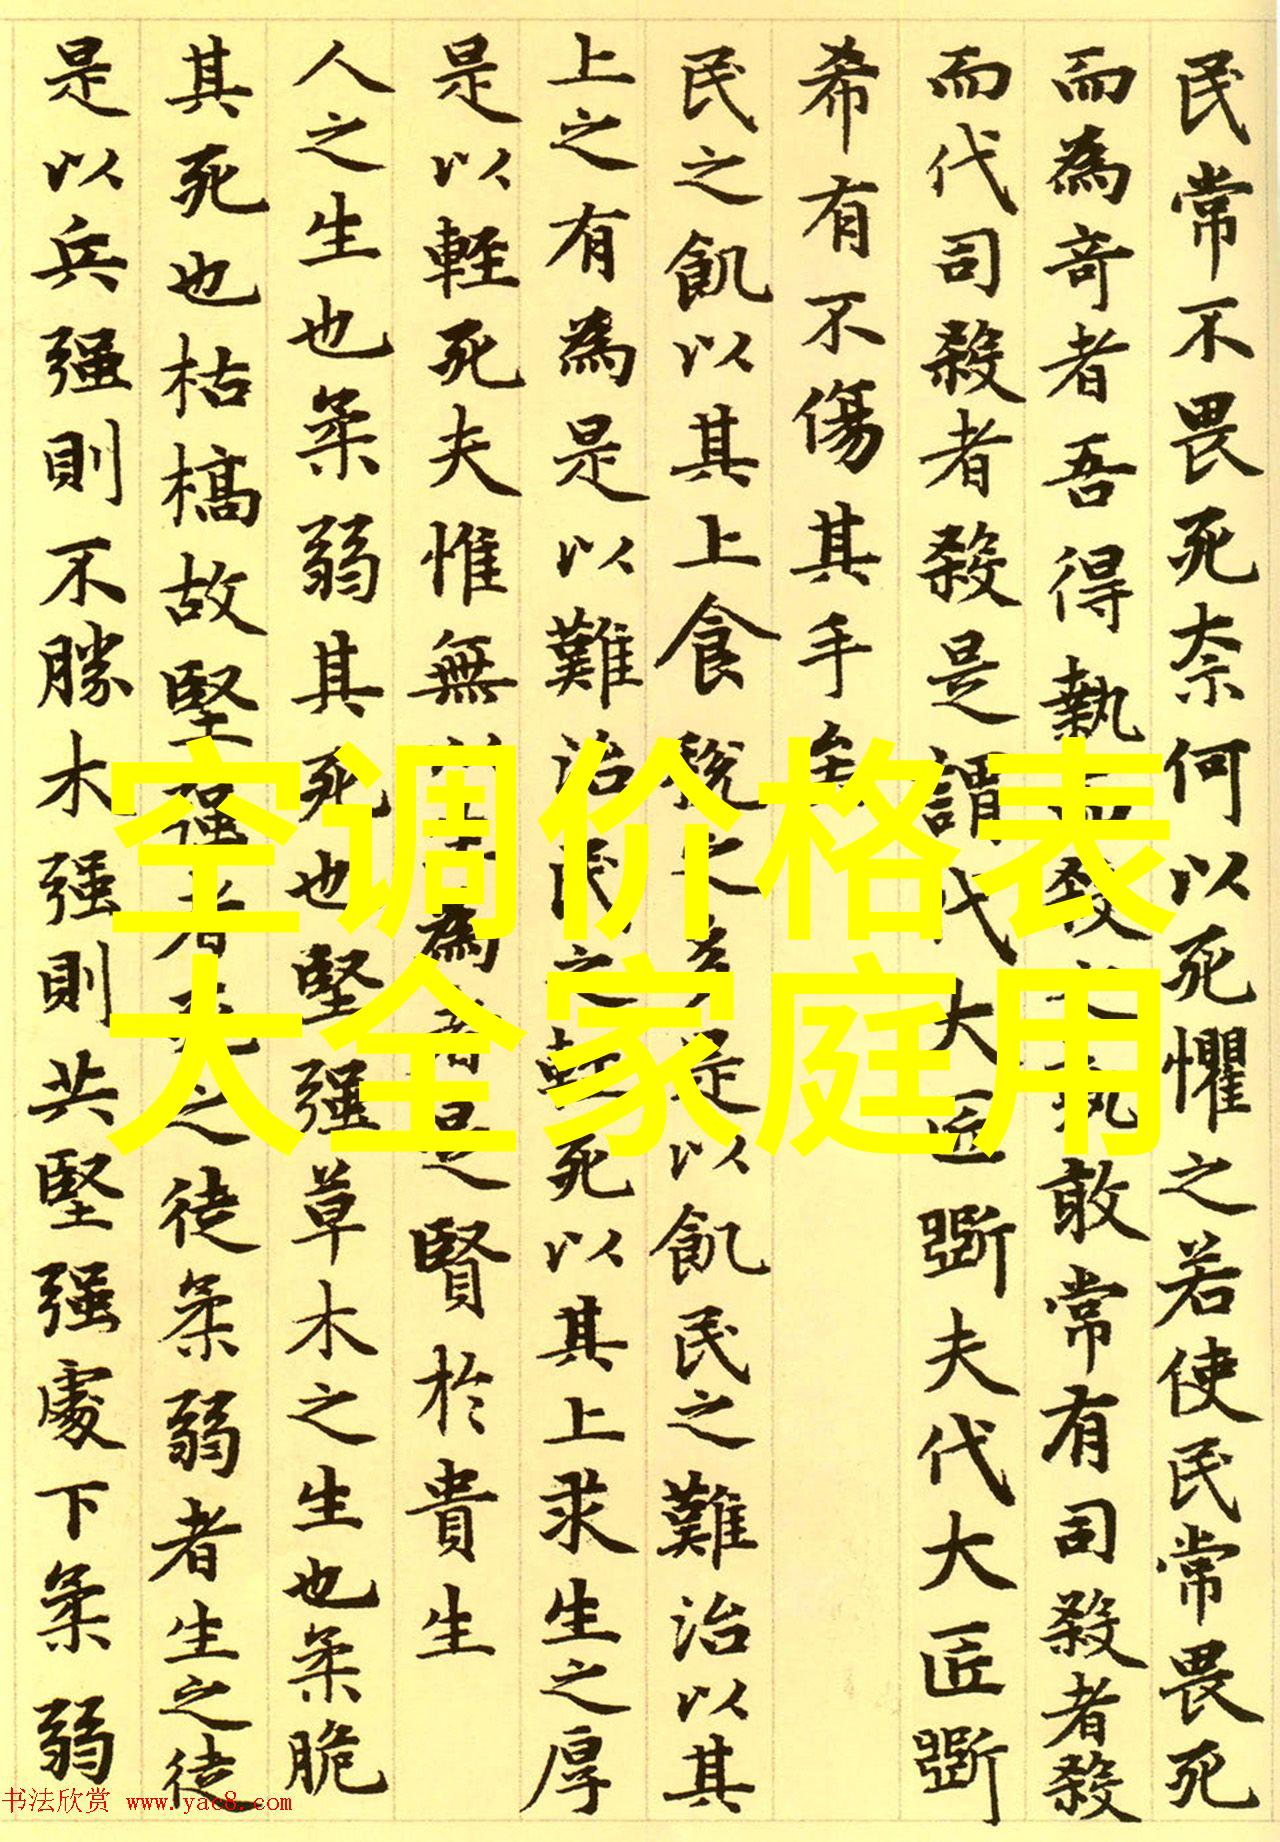 民常不畏死奈何以死懼之若使民常畏死
而為奇者吾得執而殺之孰敢常有司殺者殺
而代司殺者殺是謂代大匠斲夫代大匠斲
希有不傷其手矣
民之飢以其上食稅之多是以飢民之難治以其
上之有為是以難治民之輕死以其上求生之厚
是以輕死夫惟無以生為者是賢於貴生
人之生也柔弱其死也堅强草木之生也柔脆
其死也枯槁故堅强者死之徒柔弱者生之徒
是以兵强則不勝木强則共堅强處下柔弱
空调价格表
大全家庭用
书法欣赏 www.yac8.com